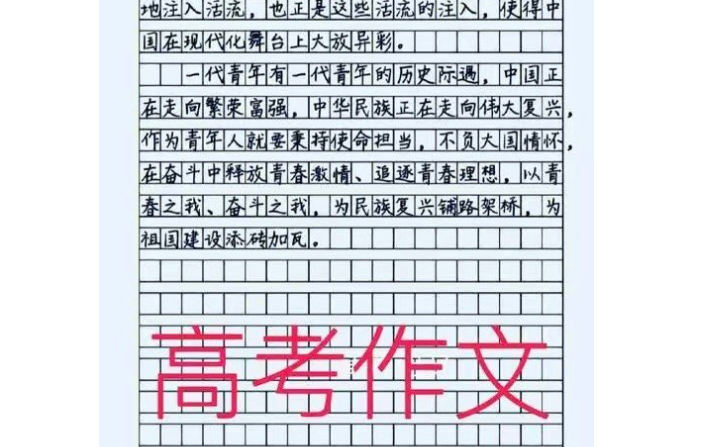 地注入活流，也正是这些活流的注入，使得中
国在现代化舞台上大放异彩。
一代青年有一代青年的历史际遇，中国正
在走向繁荣富强，中华民族正在走向伟大复兴，
作为青年人就要秉持使命担当，不负大国情怀，
在奋斗中释放青春激情、追逐青春理想，以青
春之我、奋斗之我，为民族复兴铺路架桥，为
祖国建设添砖加瓦。
高考作文